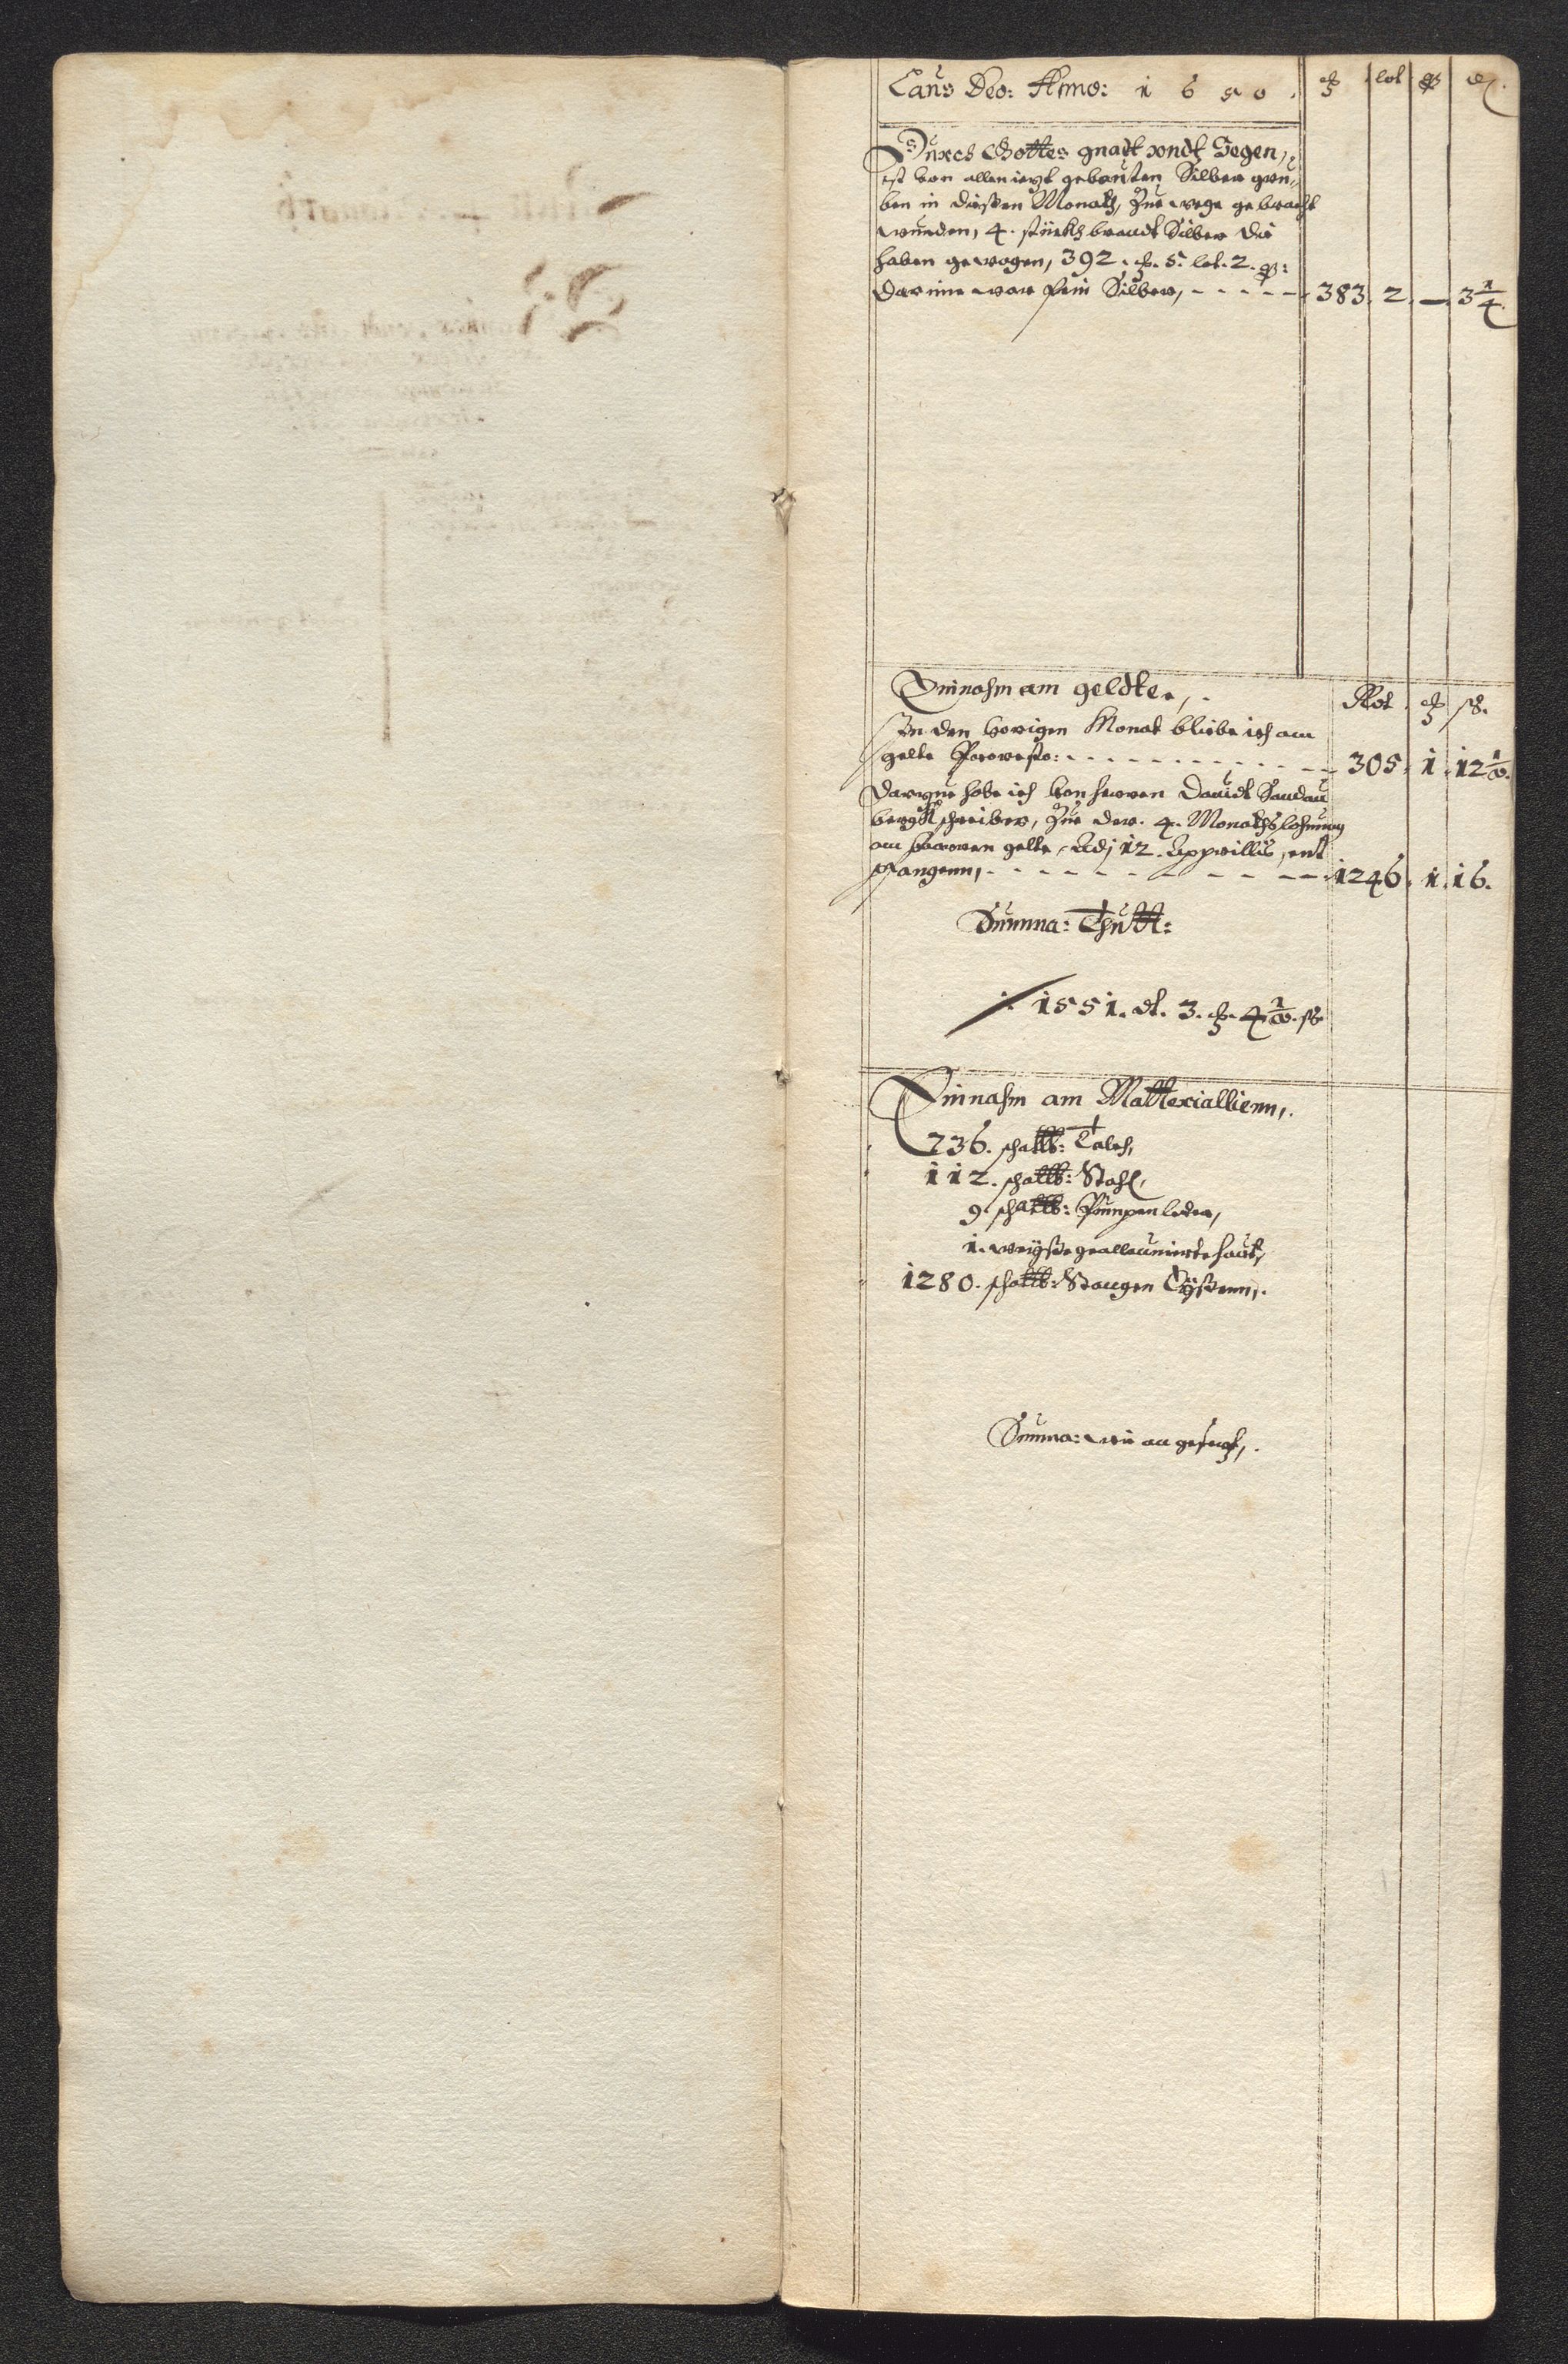 Laus Deo: Anno: 1650. ℳ lot q ₰.
Durch Gottes gnadt vndt Segen,
ist von allen ietzt gebauten Silber gru=
ben in diesen Monath, Zue wege gebracht
wurden, 4. stückh brandt Silber die
haben gewogen, 392. ℳ. 5. lot. 2. q:
Darinne war fein Silber, - - - - - 383. 2. — 3 1/4
Einnahm am geldte,.
Rdt. ℳ ß.
In den vorigen Monat bliebe ich am
gelte Perresto: - - - - - - 305. 1. 12 1/2.
Darzue habe ich von herren Dauidt Sandau
bergkschreiber, Zue der. 4. Monathslohnung
am barren gelte, Adj 12. Apprillis, ent
pfangenn, - - - - - - 1246. 1. 16.
Summa: Thutt:
1551. dl. 3. ℳ. 4 1/2. ß
Einnahm am Matteriallienn,.
236. schallb: Talch,
112. schallb: Stahl,
9. schallb: Pumpen leder,
1. weiße geallaunierte haut,
1280. schallb: Stangen Eyßenn,.
Summa: wie an gesetzt,.